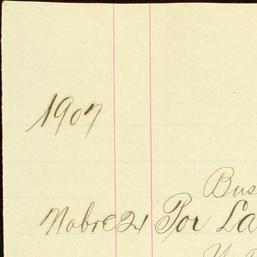 1907
Bus
Nobre 21 Por La